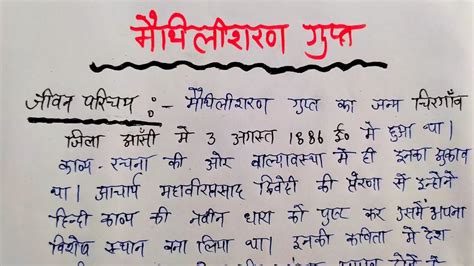 मैथिलीशरण गुप्त
जीवन परिचय :- मैथिलीशरण गुप्त का जन्म चिरगाँव
जिला झाँसी में 3 अगस्त 1886 ई० में हुआ था।
काव्य-रचना की ओर बाल्यावस्था में ही इनका झुकाव
था। आचार्य महावीरप्रसाद द्विवेदी की प्रेरणा से इन्होंने
हिन्दी काव्य की नवीन धारा को पुष्ट कर उसमें अपना
विशेष स्थान बना लिया था। इनकी कविता में देश